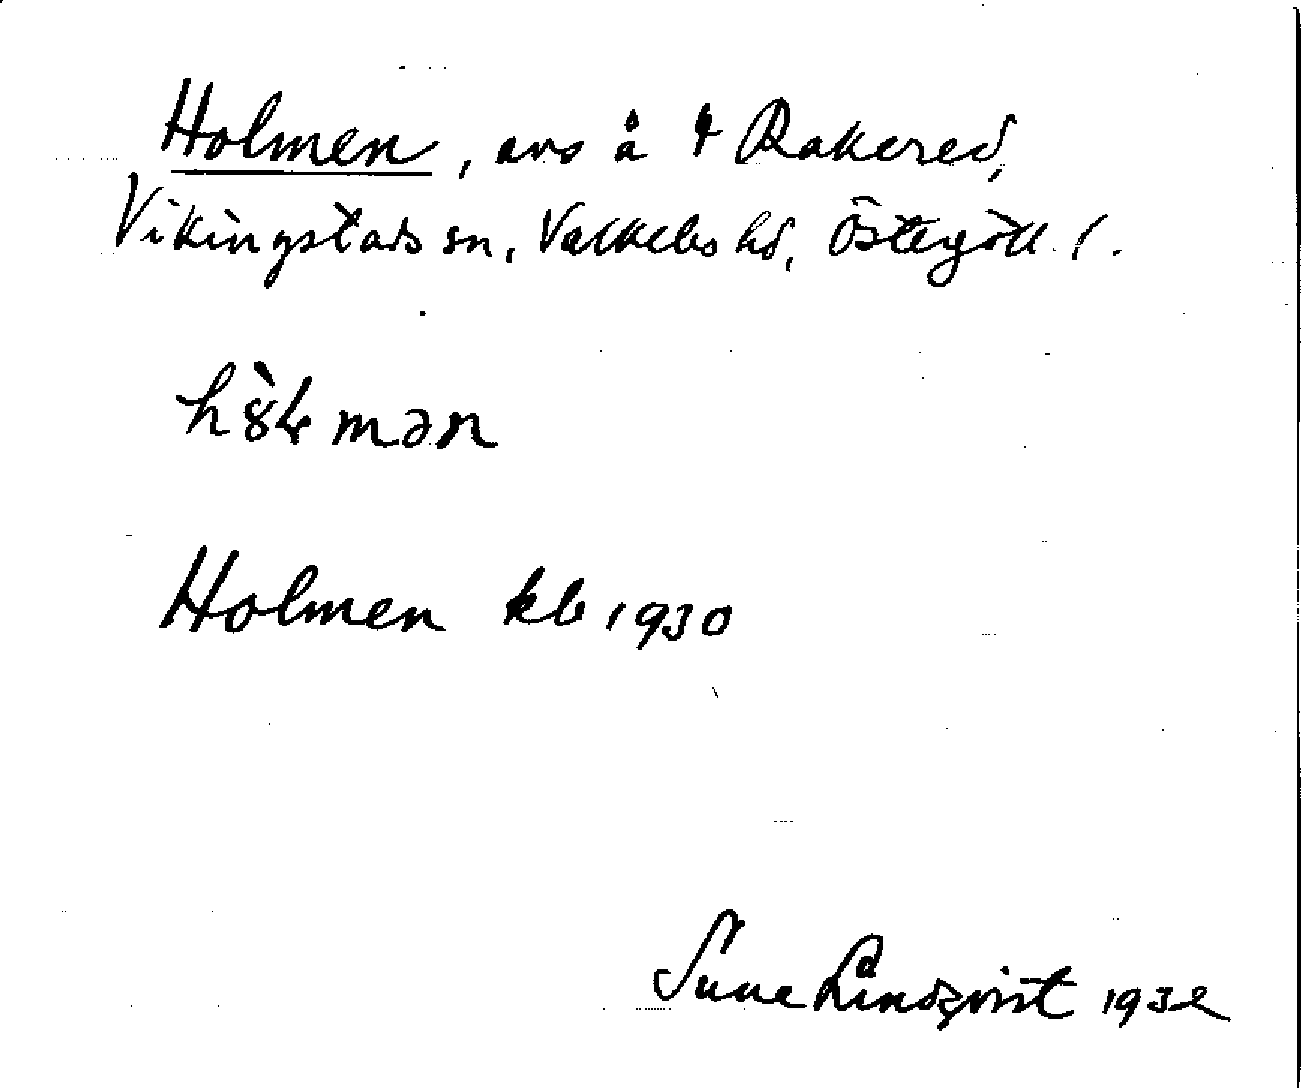 Holmen, avs å Rakered,
Vikingstads sn, Valkebo hd, Östergötl. l.
Holmen kb 1930
Sune Lindqvist 1932